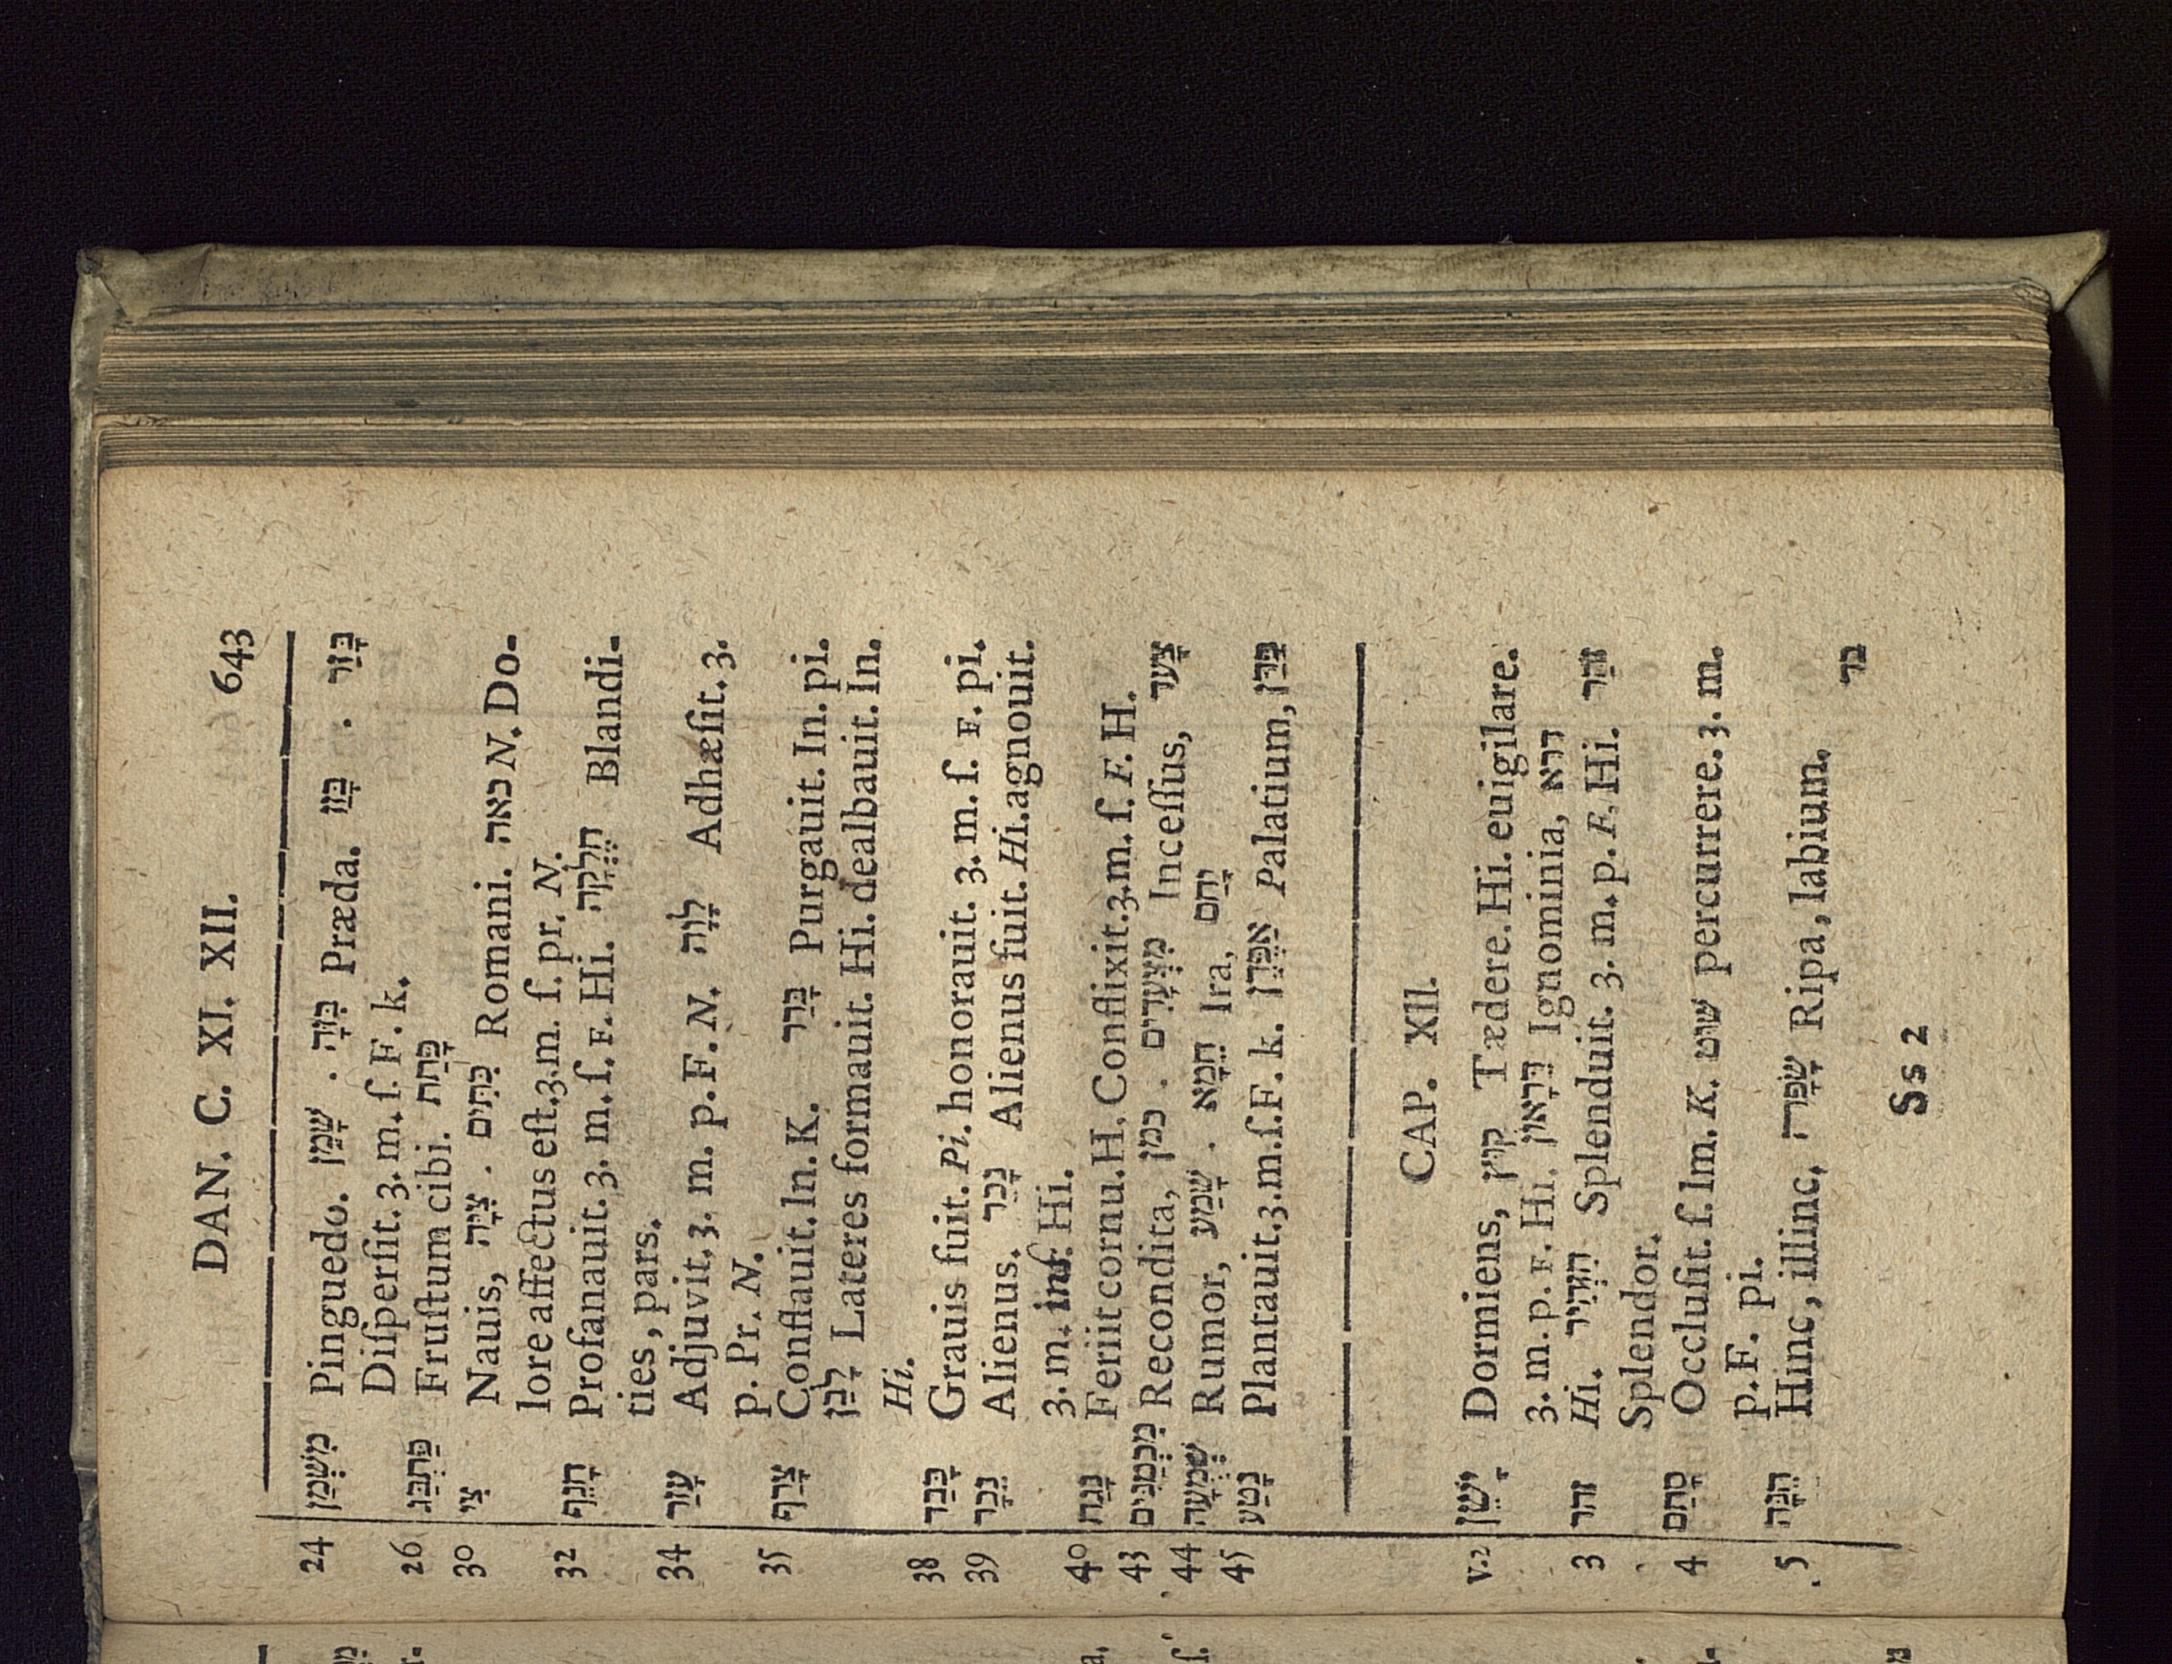 DAN. C. XI. XII. 643
24 מִשְׁמַן Pinguedo. שָׁמֵן . בִּזָה Præda. בָּזַז . בָּזַר
Diſperſit. 3. m. ſ. F. k.
26 פַּתְבַּג Fruſtum cibi. פָּתַת
30 צִי Nauis, צִיָּה . כִּתִּים Romani. כאה N. Do-
lore affectus eſt. 3. m. ſ. pr. N.
32 חָנֵף Profanauit. 3. m. ſ. F. Hi. חֲלַקָּה Blandi-
ties, pars.
34 עָזַר Adjuvit, 3. m. p. F. N. לָוָה Adhæſit. 3.
p. Pr. N.
35 צָרַף Conflauit. In. K. בָּרַר Purgauit. In. pi.
לָבַן Lateres formauit. Hi. dealbauit. In.
Hi.
38 כָּבַד Grauis fuit. Pi. honorauit. 3. m. ſ. F. pi.
39 נֵכָר Alienus. נָכַר Alienus fuit. Hi. agnouit.
3. m. inf. Hi.
40 נָגַח Feriit cornu. H. Conflixit. 3. m. ſ. F. H.
43 מִכְמַנִּים Recondita, כמן . מִצְעָדִים Inceſſus, צָעַד
44 שְׁמֻעָה Rumor, שָׁמַע . חֵמָא Ira, יָחַם
45 נָטַע Plantauit. 3. m. ſ. F. k. אַפֶּדֶן Palatium, פָּדַן
CAP. XII.
V. 2 יָשֵׁן Dormiens, קוּץ Tædere. Hi. euigilare.
3. m. p. F. Hi. דֵּרָאוֹן Ignominia, דרא
3 זהר Hi. הִזְהִיר Splenduit. 3. m. p. F. Hi. זֹהַר
Splendor.
4 סָתַם Occluſit. ſ. Im. K. שׁוּט percurrere. 3. m.
p. F. pi.
5 הֵנָּה Hinc, illinc, שָׂפָה Ripa, labium.
Ss 2 בר